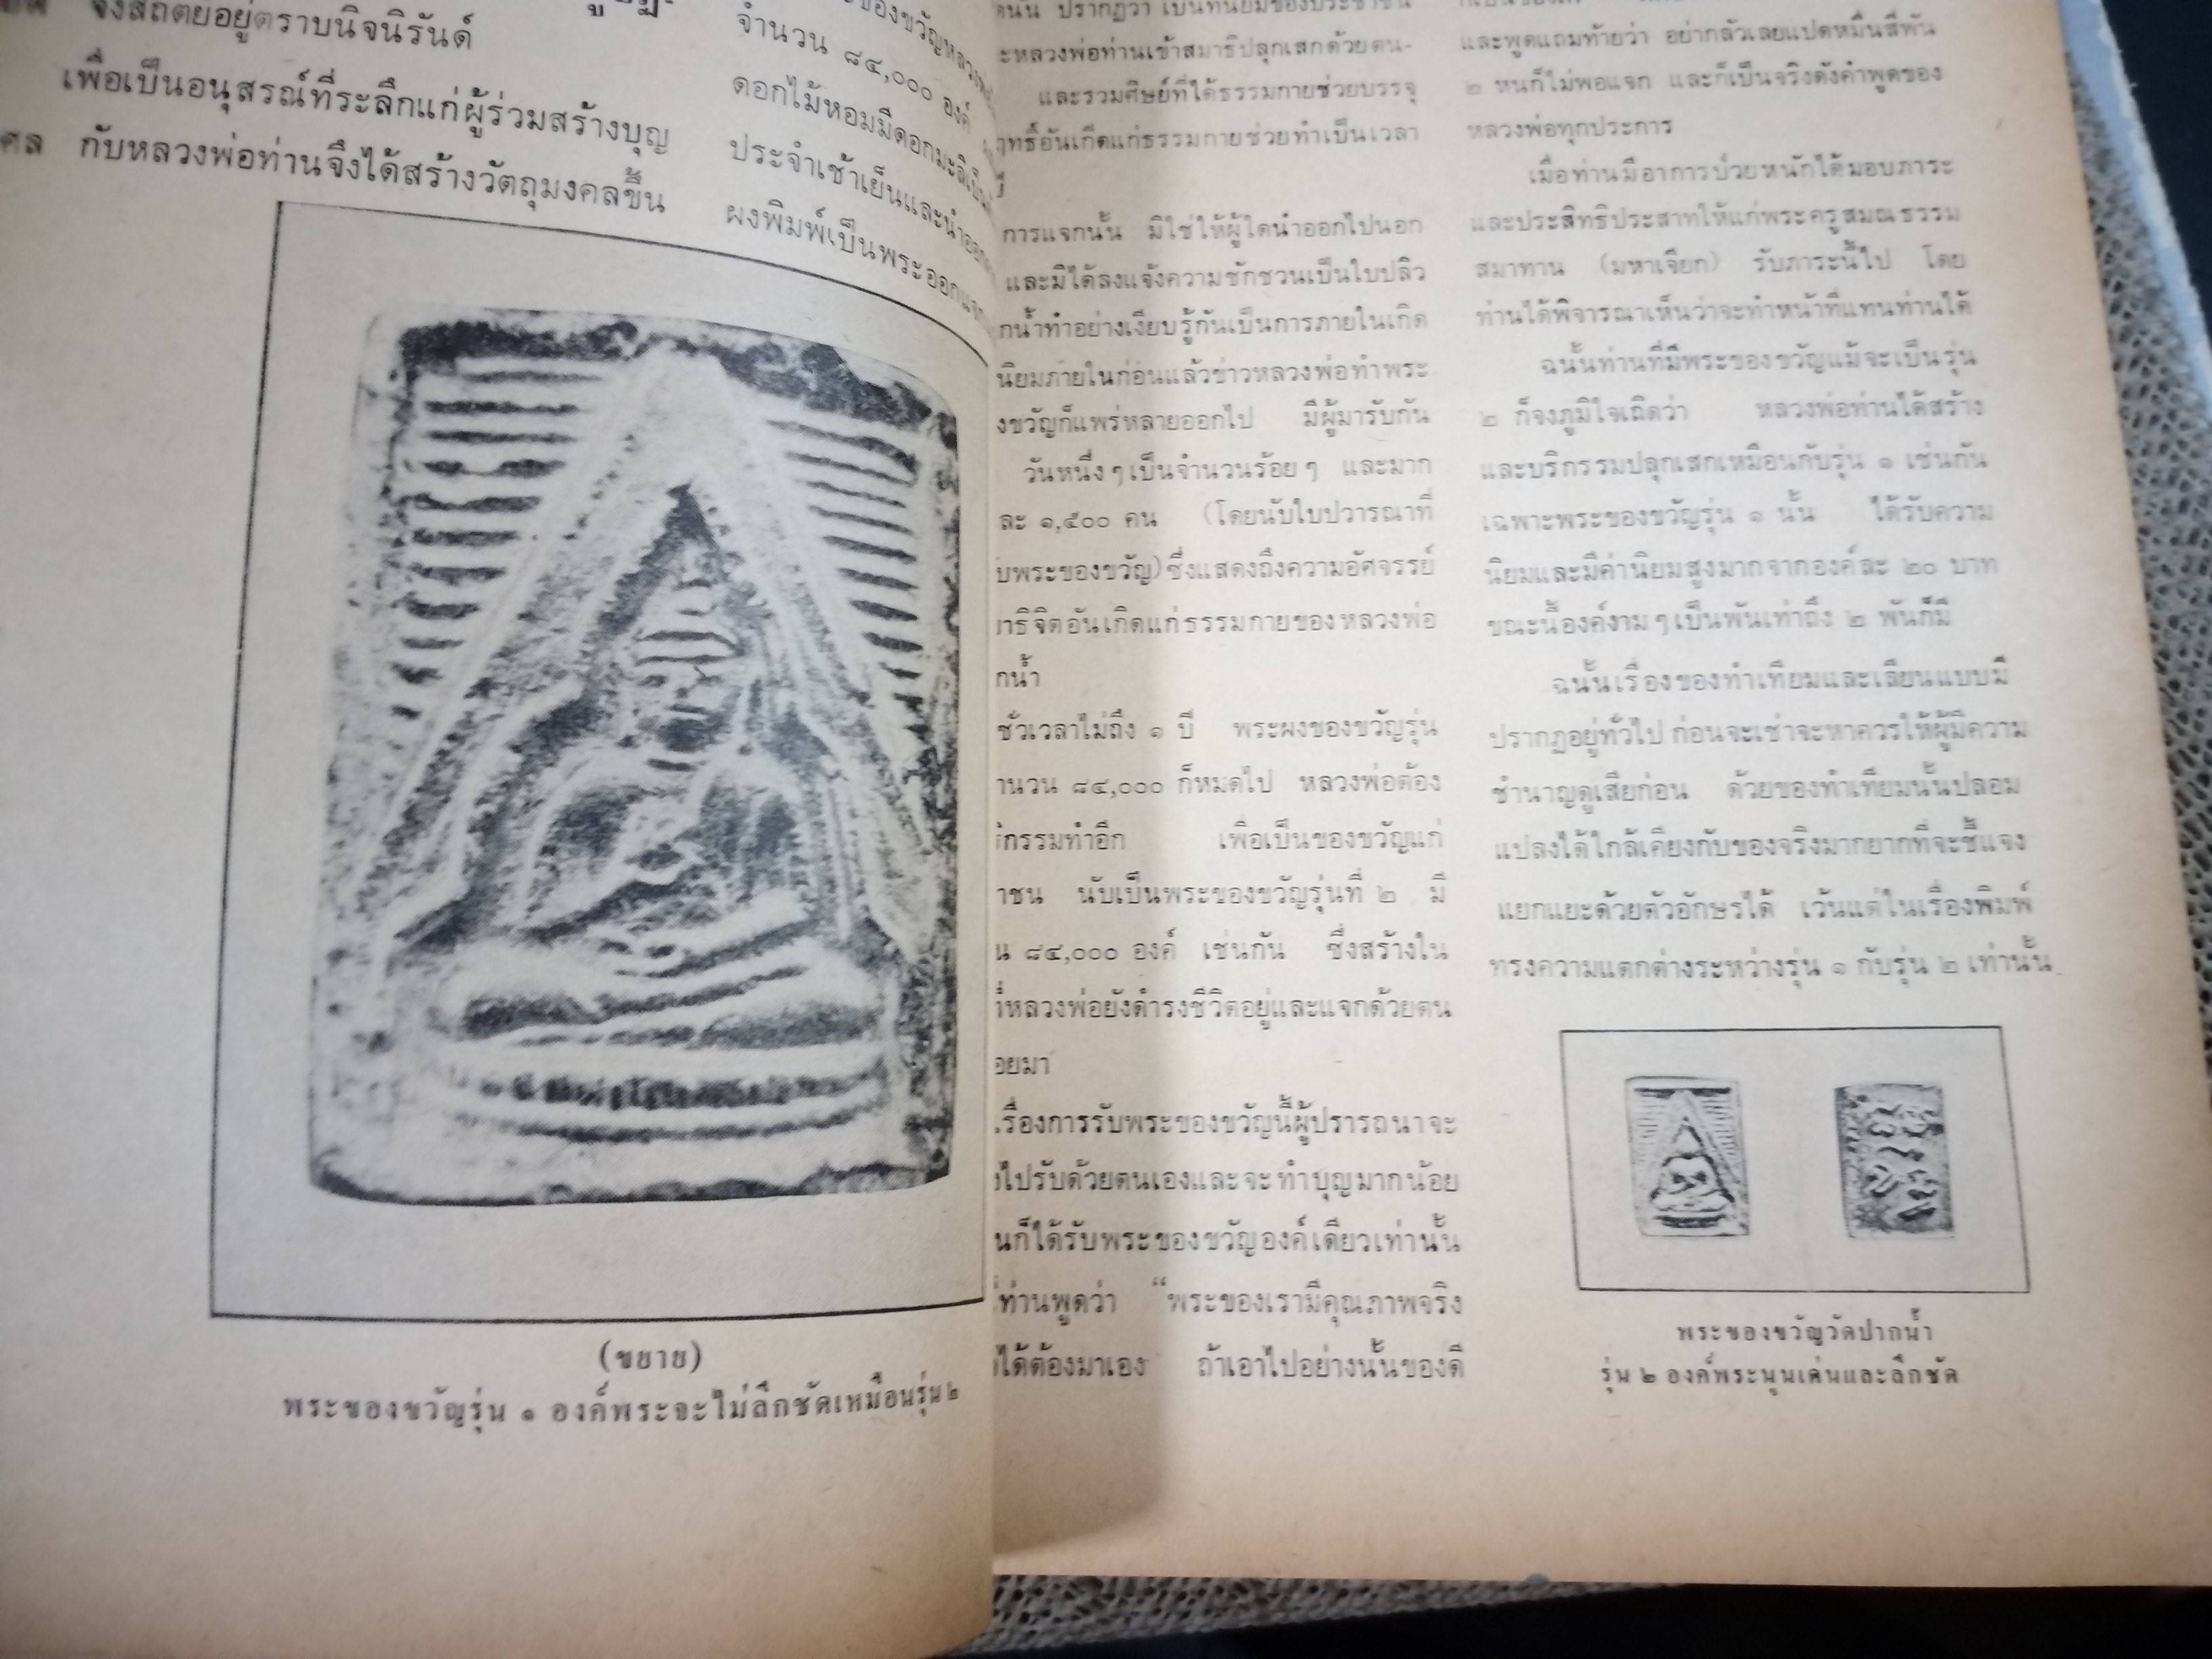 จึงสถิตยอยู่ตราบนิจนิรันด์
เพื่อเป็นอนุสรณ์ที่ระลึกแก่ผู้ร่วมสร้างบุญ
ศล กับหลวงพ่อท่านจึงได้สร้างวัตถุมงคลขึ้น
ของขวัญหลวงพ่อ
จำนวน ๘๔,๐๐๐ องค์
ดอกไม้หอมมีดอกมะลิเป็น
ประจำเช้าเย็นและนำออก
ผงพิมพ์เป็นพระออกแจก
(ขยาย)
พระของขวัญรุ่น ๑ องค์พระจะไม่ลึกชัดเหมือนรุ่น ๒
ปรากฏว่า เป็นที่นิยมของประชาชน
ะหลวงพ่อท่านเข้าสมาธิปลุกเสกด้วยตน-
และรวมศิษย์ที่ได้ธรรมกายช่วยบรรจุ
ฤทธิ์อันเกิดแก่ธรรมกายช่วยทำเป็นเวลา
การแจกนั้น มิใช่ให้ผู้ใดนำออกไปนอก
และมิได้ลงแจ้งความชักชวนเป็นใบปลิว
กน้ำทำอย่างเงียบรู้กันเป็นการภายในเกิด
นิยมภายในก่อนแล้วข่าวหลวงพ่อทำพระ
งขวัญก็แพร่หลายออกไป มีผู้มารับกัน
วันหนึ่งๆเป็นจำนวนร้อยๆ และมาก
ละ ๑,๕๐๐ คน (โดยนับใบปวารณาที่
บพระของขวัญ) ซึ่งแสดงถึงความอัศจรรย์
าธิจิตอันเกิดแก่ธรรมกายของหลวงพ่อ
กน้ำ
ชั่วเวลาไม่ถึง ๑ ปี พระผงของขวัญรุ่น
านวน ๘๔,๐๐๐ ก็หมดไป หลวงพ่อต้อง
กรรมทำอีก เพื่อเป็นของขวัญแก่
าชน นับเป็นพระของขวัญรุ่นที่ ๒ มี
น ๘๔,๐๐๐ องค์ เช่นกัน ซึ่งสร้างใน
ที่หลวงพ่อยังดำรงชีวิตอยู่และแจกด้วยตน
อยมา
เรื่องการรับพระของขวัญนี้ผู้ปรารถนาจะ
งไปรับด้วยตนเองและจะทำบุญมากน้อย
นก็ได้รับพระของขวัญองค์เดียวเท่านั้น
ท่านพูดว่า “พระของเรามีคุณภาพจริง
ได้ต้องมาเอง ถ้าเอาไปอย่างนั้นของดี
และพูดแถมท้ายว่า อย่ากลัวเลยแปดหมื่นสี่พัน
๒ หนก็ไม่พอแจก และก็เป็นจริงดังคำพูดของ
หลวงพ่อทุกประการ
เมื่อท่านมีอาการป่วยหนักได้มอบภาระ
และประสิทธิประสาทให้แก่พระครูสมณธรรม
สมาทาน (มหาเจียก) รับภาระนี้ไป โดย
ท่านได้พิจารณาเห็นว่าจะทำหน้าที่แทนท่านได้
ฉนั้นท่านที่มีพระของขวัญแม้จะเป็นรุ่น
๒ ก็จงภูมิใจเถิดว่า หลวงพ่อท่านได้สร้าง
และบริกรรมปลุกเสกเหมือนกับรุ่น ๑ เช่นกัน
เฉพาะพระของขวัญรุ่น ๑ นั้น ได้รับความ
นิยมและมีค่านิยมสูงมากจากองค์ละ ๒๐ บาท
ขณะนี้องค์งามๆเป็นพันเท่าถึง ๒ พันก็มี
ฉนั้นเรื่องของทำเทียมและเลียนแบบมี
ปรากฏอยู่ทั่วไป ก่อนจะเช่าจะหาควรให้ผู้มีความ
ชำนาญดูเสียก่อน ด้วยของทำเทียมนั้นปลอม
แปลงได้ใกล้เคียงกับของจริงมากยากที่จะชี้แจง
แยกแยะด้วยตัวอักษรได้ เว้นแต่ในเรื่องพิมพ์
ทรงความแตกต่างระหว่างรุ่น ๑ กับรุ่น ๒ เท่านั้น
พระของขวัญวัดปากน้ำ
รุ่น ๒ องค์พระนูนเด่นและลึกชัด